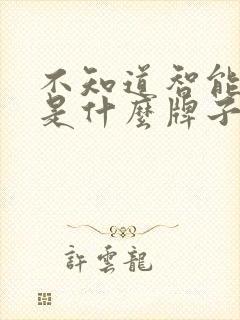 不知道智能
是什麼牌子
許雲龍